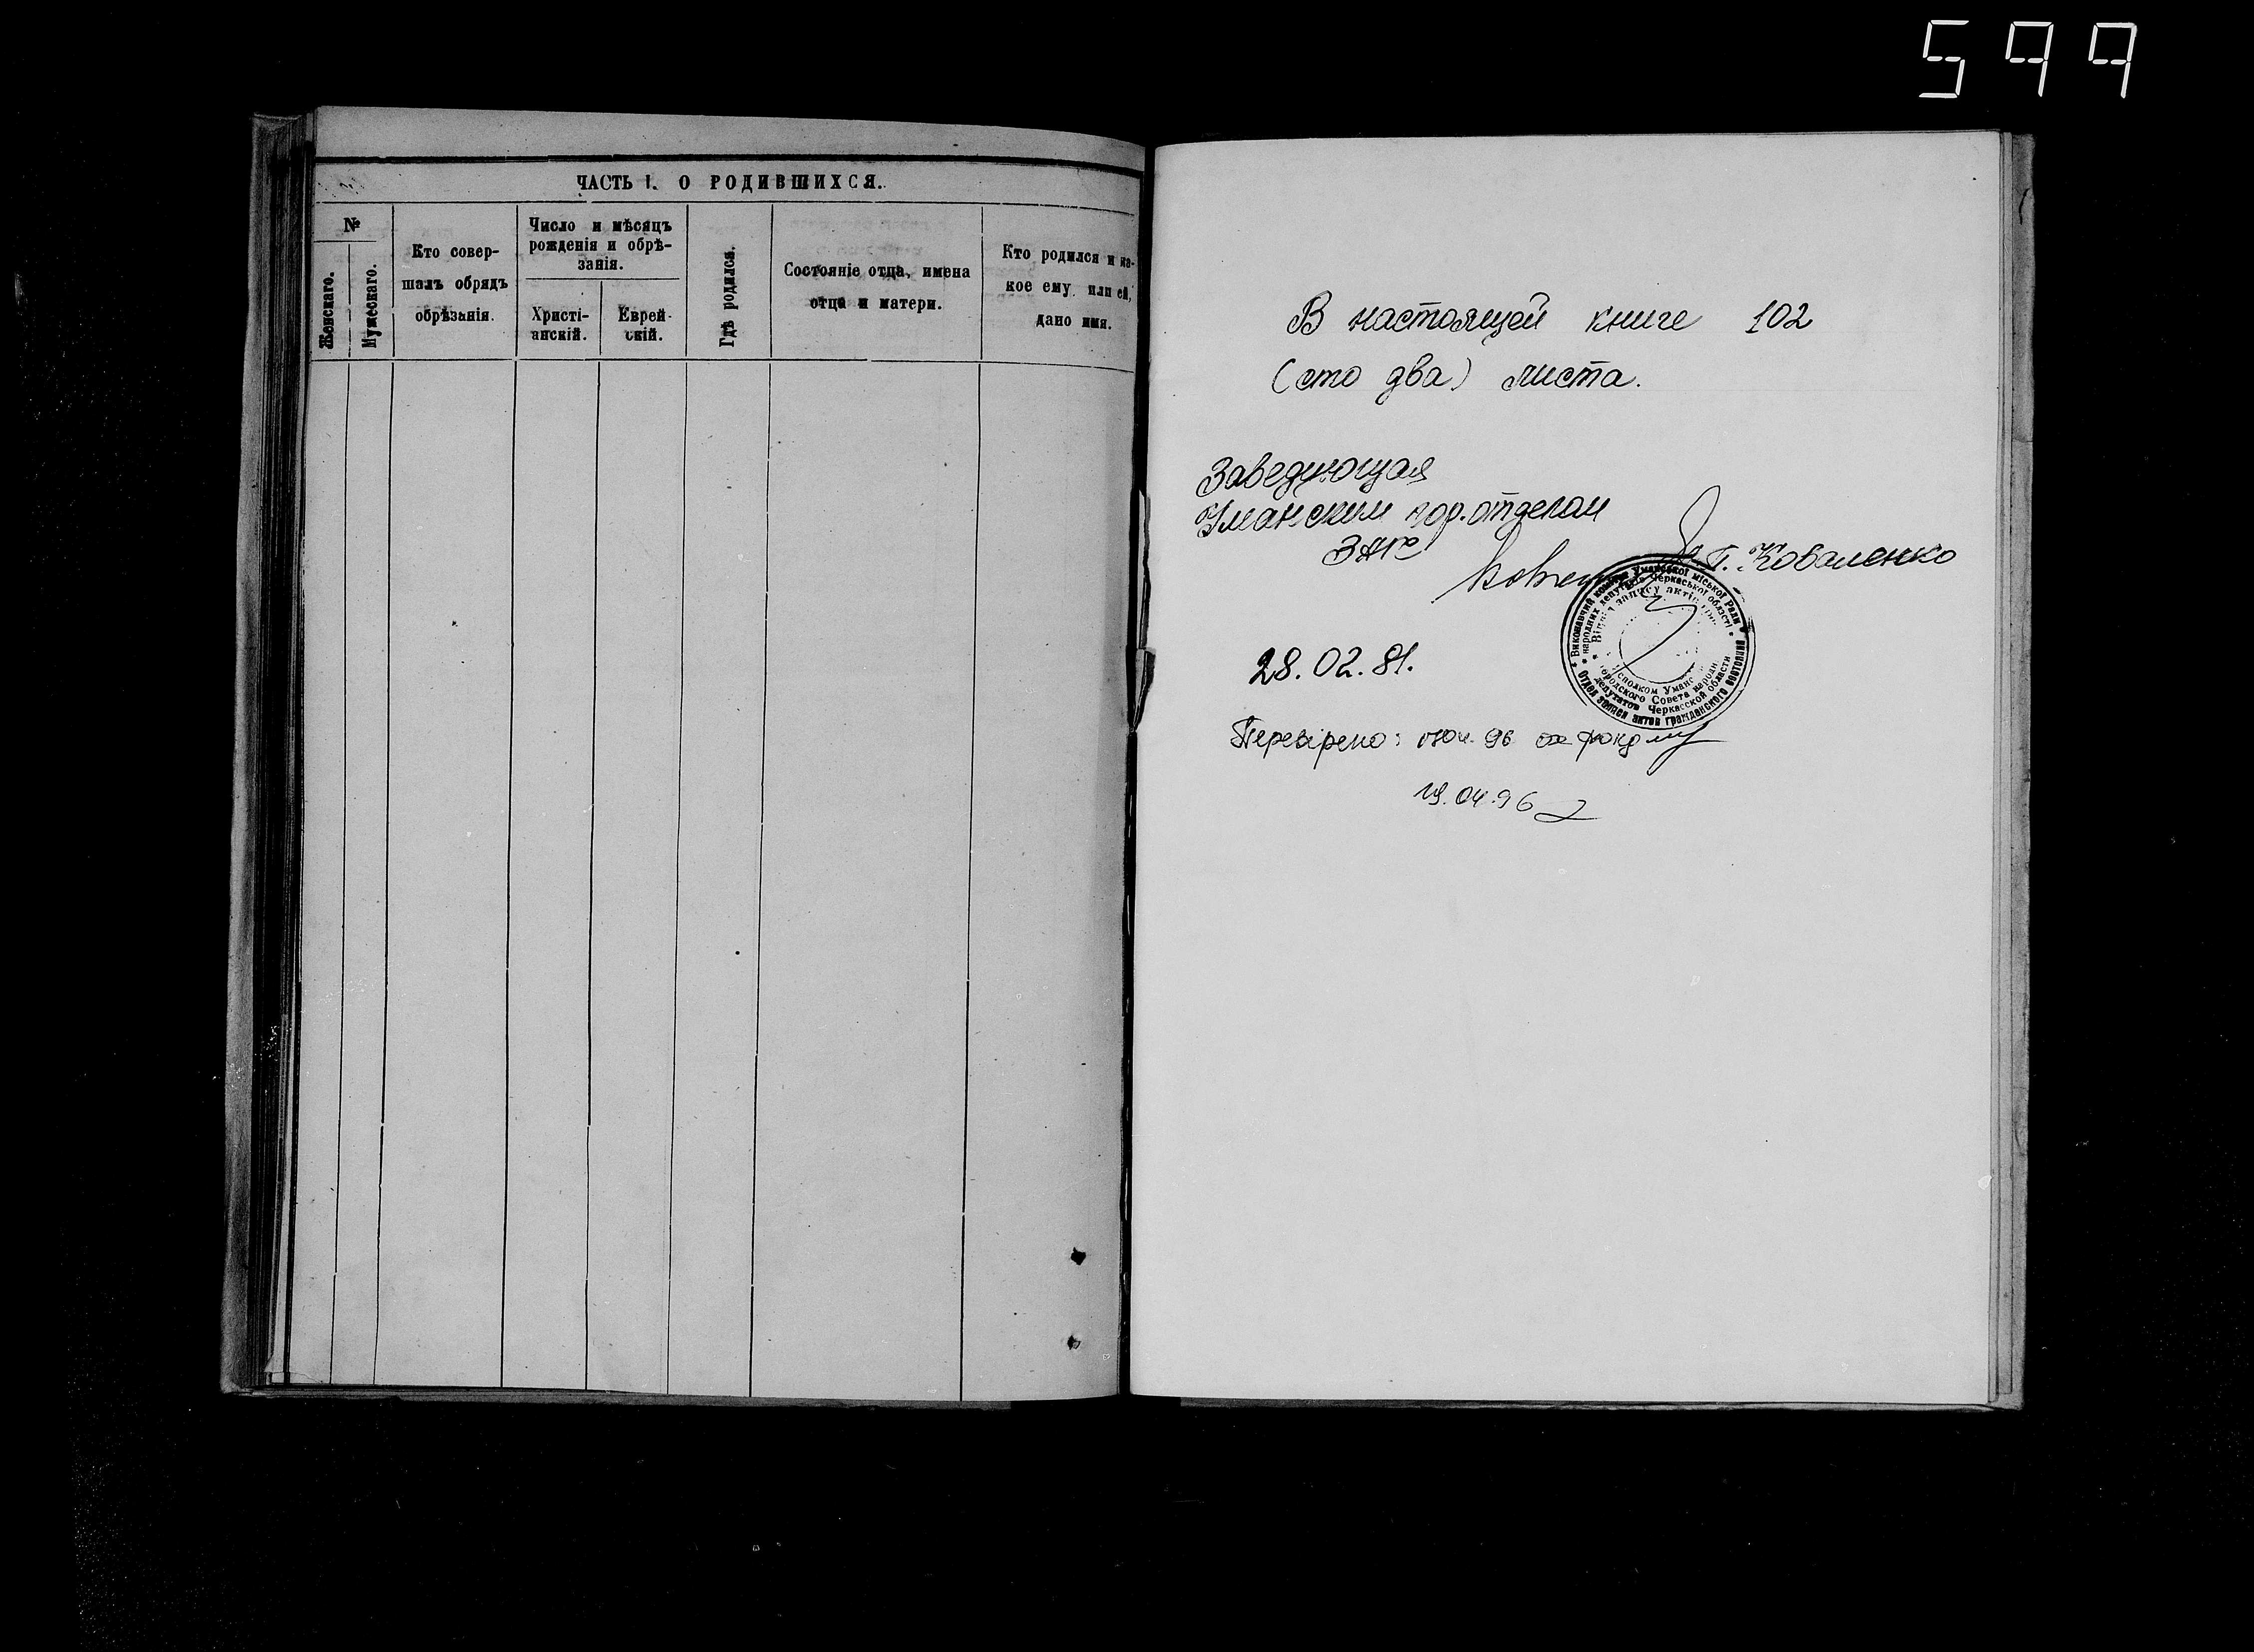 599
ЧАСТЬ I. О РОДИВШИХСЯ.
№
Женскаго.
Мужескаго.
Кто совер-
шалъ обрядъ
обрѣзанія.
Число и мѣсяцъ
рожденія и обрѣ-
занія.
Христі-
анскій.
Еврей-
скій.
Гдѣ родился.
Состояніе отца, имена
отца и матери.
Кто родился и ка-
кое ему или ей,
дано имя.
В настоящей книге 102
(сто два) листа.
Заведующая
Уманским гор.отделом
ЗАГС
Г. Коваленко
Виконавчий комітет Уманської міської Ради
народних депутатів Черкаської області
Відділ запису актів
исполком Уманс
городского Совета народн
депутатов Черкасской области
Отдел записи актов гражданского состояния
28.02.81.
Перевірено: 96
19.04.96